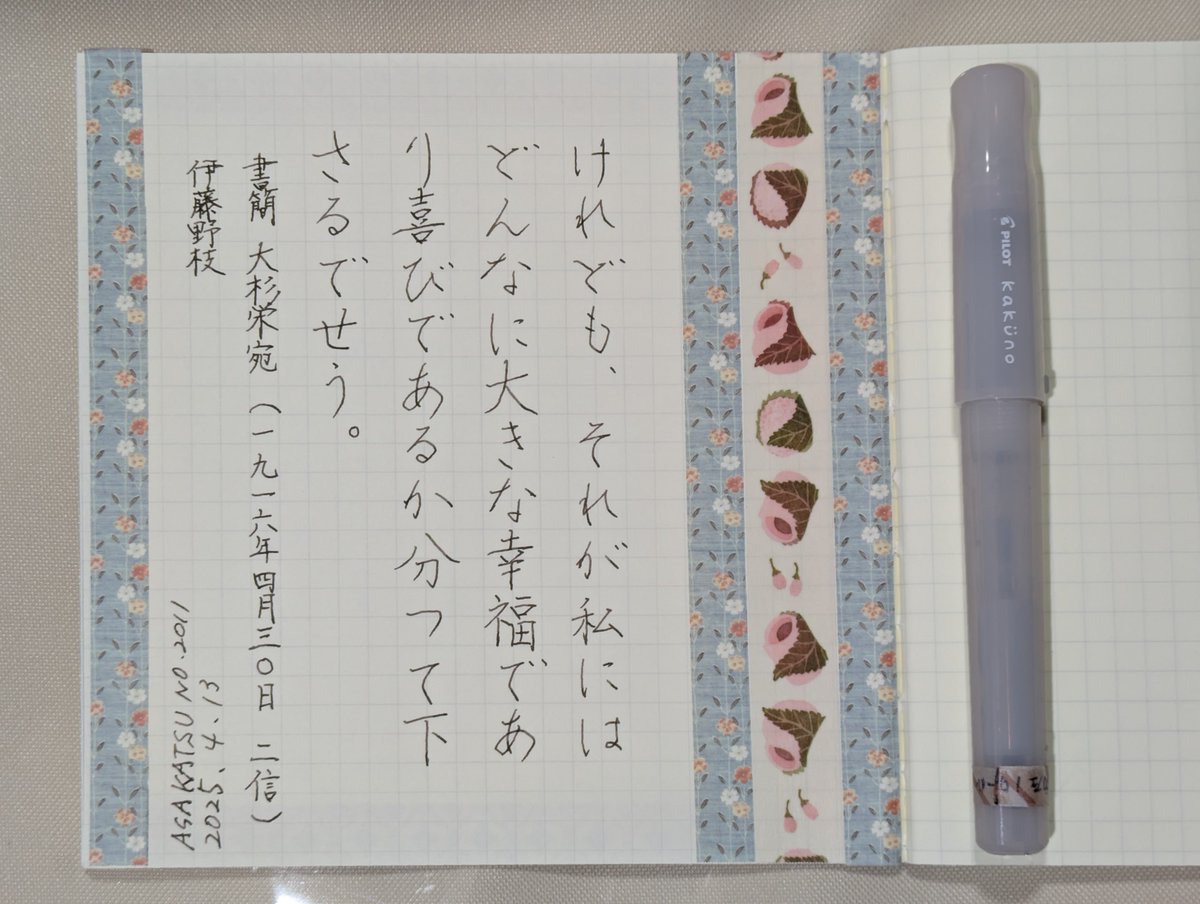 けれども、それが私には
どんなに大きな幸福であ
り喜びであるか分つて下
さるでせう。
書簡 大杉栄宛 (一九一六年四月三〇日 二信)
伊藤野枝
ASAKATSU NO.2011
2025.4.13
PILOT kaküno